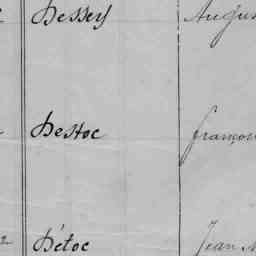 Dessery Augus
Destoc françoi
2 Détoc Jean